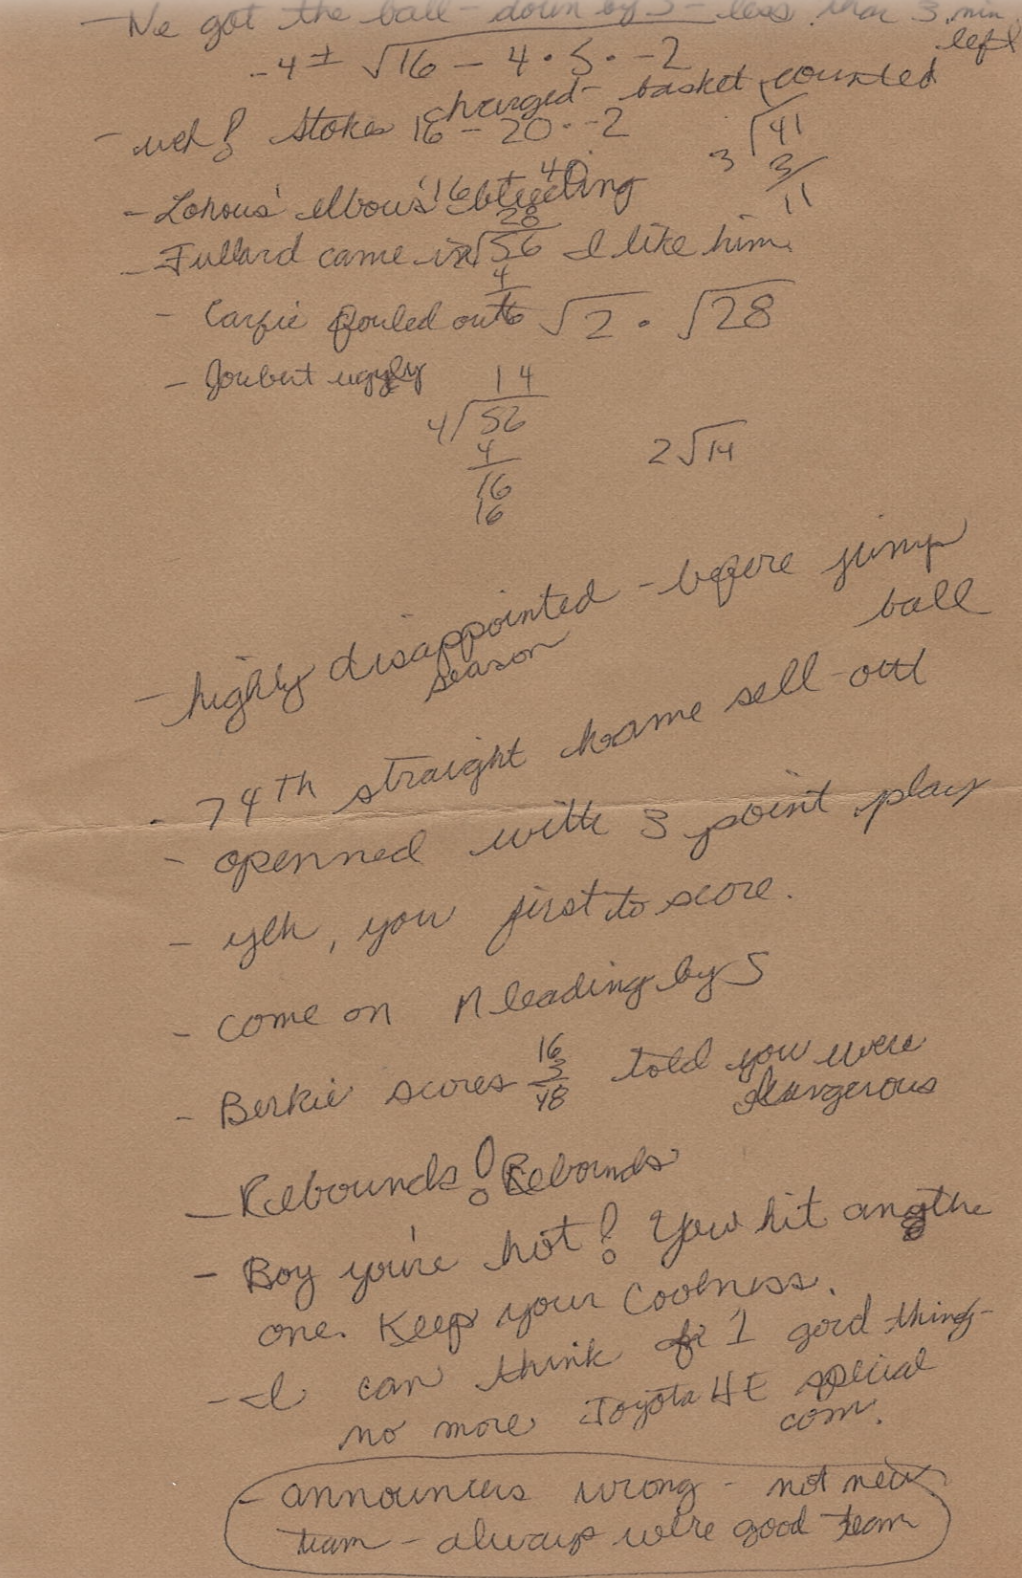 - We got the ball - down by 5 - less than 3 min left
-4 ± √16 - 4 · 5 · -2
- weh! Stokes charged - basket counted
16 - 20 · -2
3 √41
3
11
- Lohous' elbows
16 40
- Fullard came in I like him.
28
2√56
4
16
- Carfie fouled out √2 · √28
- Joubert ugly
14
4√56
4
16
16
2√14
- highly disappointed - before jump ball
season
- 74th straight home sell-out
- openned with 3 point play
- yeh, you first to score.
- come on N leading by 5
- Berkie scores told you were dangerous
16
3
48
- Rebounds! Rebounds
- Boy you're hot! You hit anothe
one. Keep your Coolness.
- I can think of 1 good thing -
no more Toyota HE special
com.
- announcers wrong - not new
team - always were good team